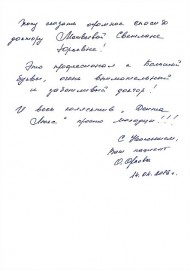 Хочу сказать огромное спасибо
доктору Матвеевой Светлане
Юрьевне!
Это профессионал с большой
буквы, очень внимательный
и заботливый доктор!
И весь коллектив "Дента
Люкс" просто молодцы!!!
С уважением,
Ваш пациент
О. Орлова